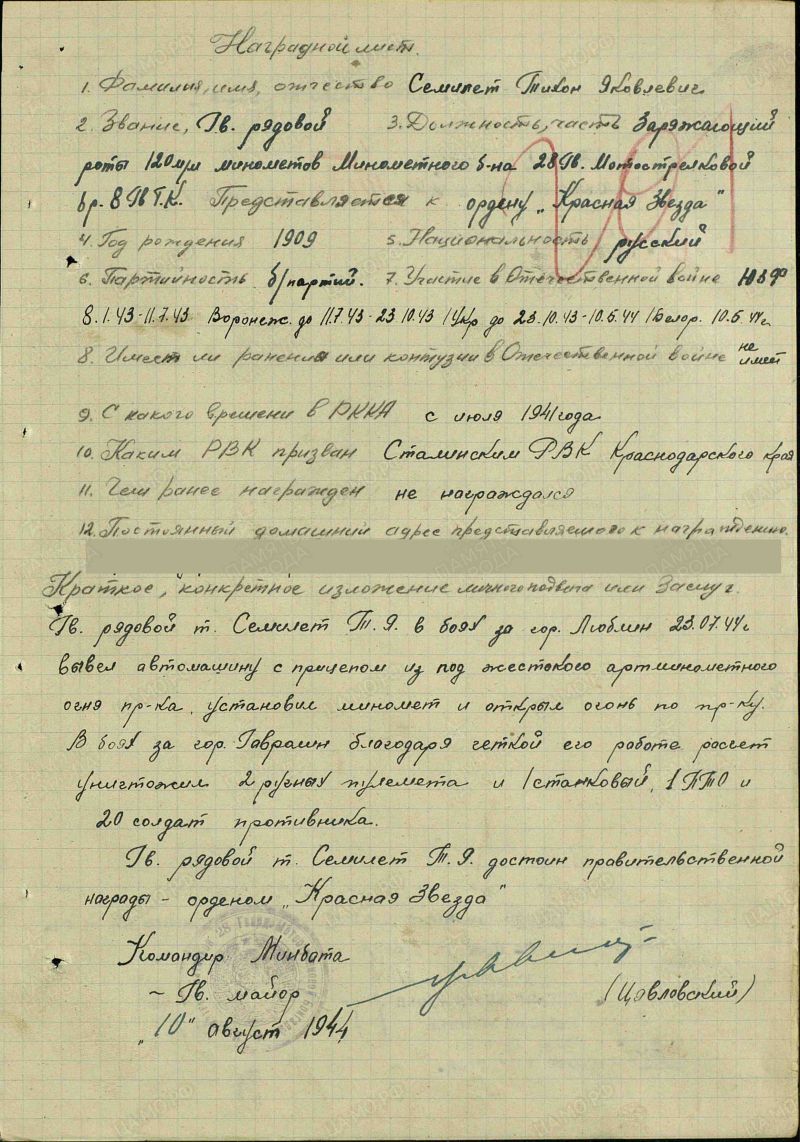 Наградной лист.
1. Фамилия, имя, отчество Семилет Тихон Яковлевич
2. Звание, Гв. рядовой 3. Должность, часть Заряжающий
роты 120 м/м минометов Минометного б-на 28 Гв. Мотострелковой
бр. 8 Гв Т.К. Представляется к ордену „Красная Звезда"
4. Год рождения 1909 5. Национальность русский
6. Партийность б/партий. 7. Участие в Отечественной войне
8.1.43-11.7.43 Воронеж. до 11.7.43-23.10.43 1 Укр до 23.10.43-10.6.44 1 Белор. 10.6.44 г.
8. Имеет ли ранения или контузии в Отечественной войне не имеет
9. С какого времени в РККА с июля 1941 года
10. Каким РВК призван Сталинским РВК Краснодарского края
11. Чем ранее награжден не награждался
12. Постоянный домашний адрес представляемого к награждению.
Краткое, конкретное изложение личного подвига или заслуг.
Гв. рядовой т. Семилет Т.Я. в боях за гор. Люблин 23.07.44 г
вывел автомашину с прицепом из под жестокого артминометного
огня пр-ка, установил миномет и открыл огонь по пр-ку.
В боях за гор. Гавралин благодаря четкой его работе расчет
уничтожил 2 ручных пулемета и 1 станковый, 1 ПТО и
20 солдат противника.
Гв. рядовой т. Семилет Т.Я. достоин правительственной
награды - орденом „Красная Звезда"
Командир Минбата
- Гв. майор (Цявловский)
„10" август 1944